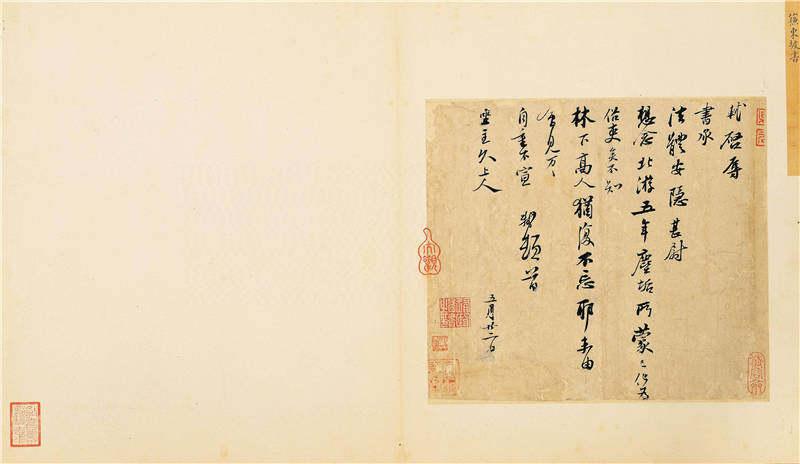 蘓東坡書
軾啓辱
書承
法體安隱甚尉
想念北游五年塵垢所蒙已化為
俗吏矣不知
林下高人猶復不忘耶未由
會見万万
自重不宣 軾頓首
坐主久上人
五月廿二日